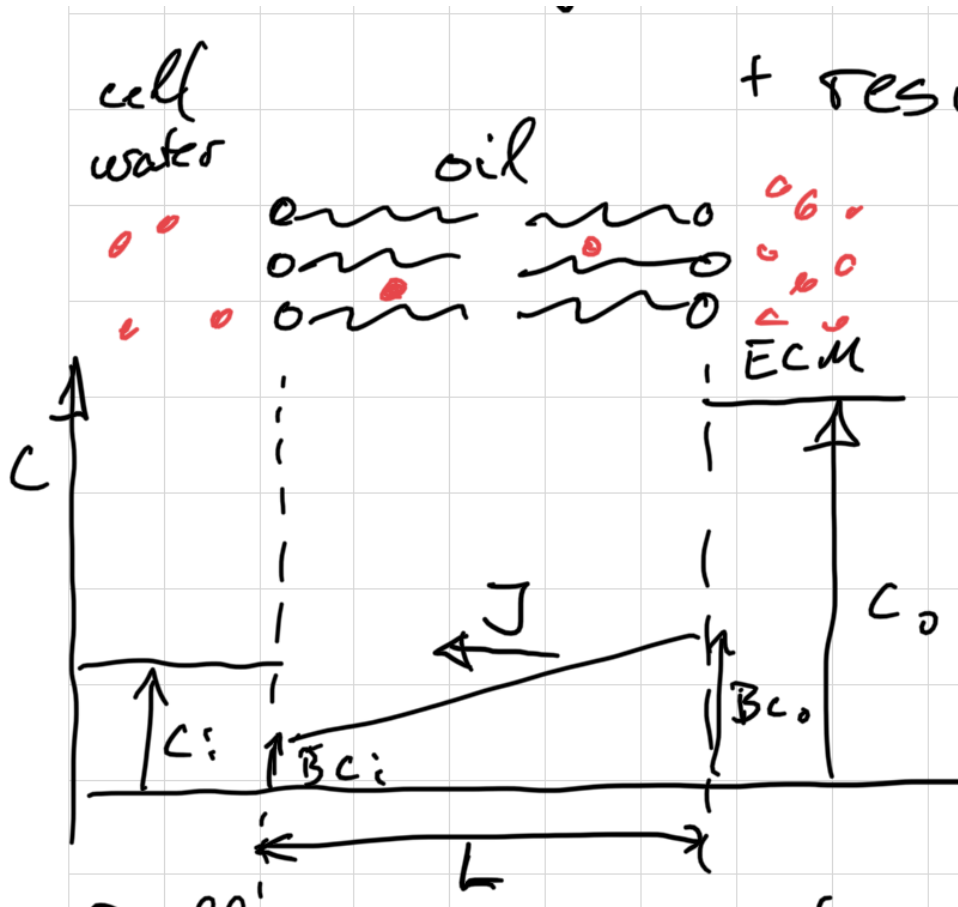 cell
water
oil
+ res
ECM
C
J
Co
Ci
BCi
BCo
L